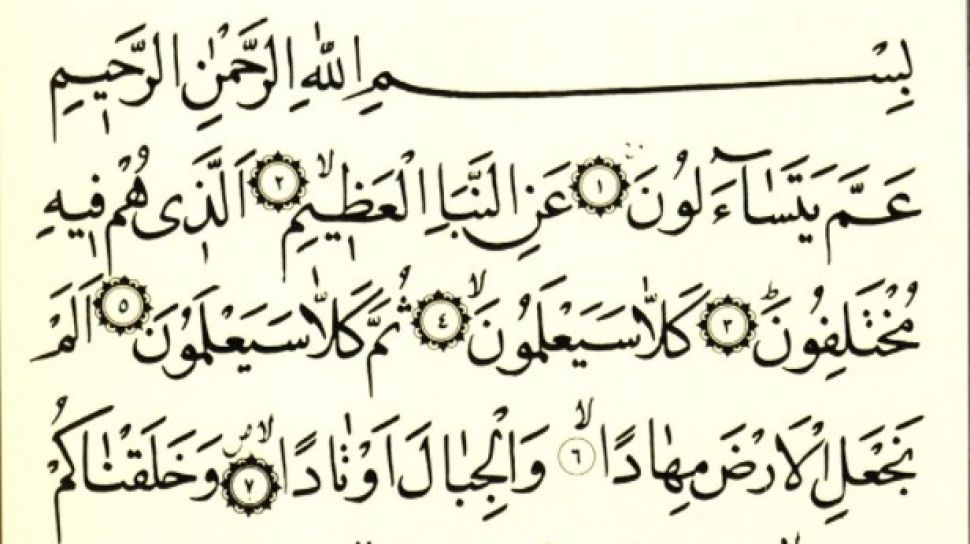 بِسْمِ اللّٰهِ الرَّحْمٰنِ الرَّحٖيمِ
عَمَّ يَتَسَٓاءَلُونَ ١ عَنِ النَّبَاِ الْعَظٖيمِۙ ٢ اَلَّذٖى هُمْ فٖيهِ
مُخْتَلِفُونَؕ ٣ كَلَّا سَيَعْلَمُونَۙ ٤ ثُمَّ كَلَّا سَيَعْلَمُونَ ٥ اَلَمْ
نَجْعَلِ الْاَرْضَ مِهَادًاۙ ٦ وَالْجِبَالَ اَوْتَادًاۙ ٧ وَخَلَقْنَاكُمْ